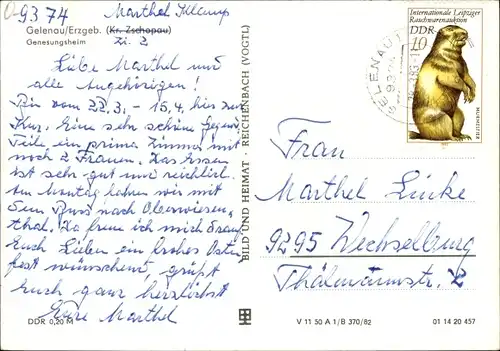 0-9374
Marthel
Gelenau/Erzgeb. (Kr. Zschopau)
Genesungsheim
Zi. 2
Liebe Marthel und
alle Angehörigen!
Bin vom 22.3. - 15.4. hier zur
Kur. Eine sehr schöne Gegend
Teile ein prima Zimmer mit
noch 2 Frauen. Das Essen
ist sehr gut und reichlich.
Am Montag fahren wir mit
dem Bus nach Oberwiesen-
thal. Da freu ich mich drauf
Euch Lieben ein frohes Oster-
fest wünschend, grüßt
Euch ganz herzlichst
Eure Marthel
DDR 0,20 M
BILD UND HEIMAT · REICHENBACH (VOGTL)
Internationale Leipziger
Rauchwarenauktion
DDR
10
MURMELTIER
GELENAU
Frau
Marthel Linke
9295 Wechselburg
Thälmannstr. 2
V 11 50 A 1/B 370/82
01 14 20 457